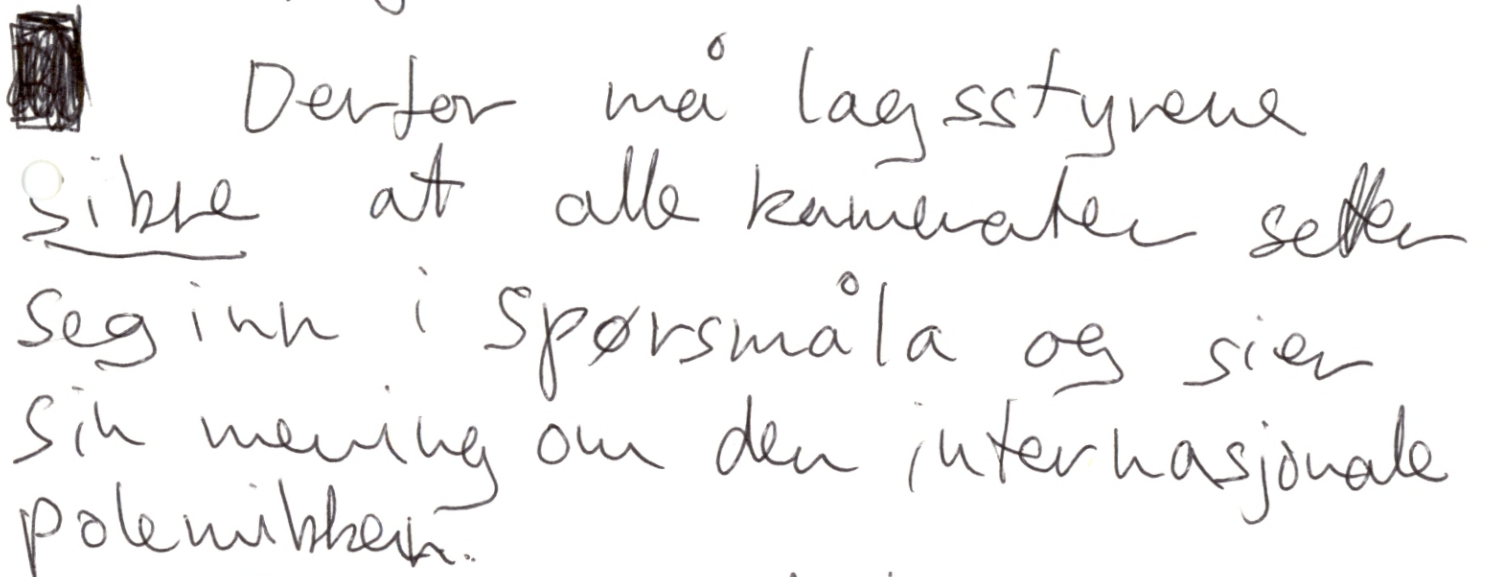 Derfor må lagsstyrene
sikre at alle kamerater setter
seg inn i spørsmåla og sier
sin mening om den internasjonale
polemikken.